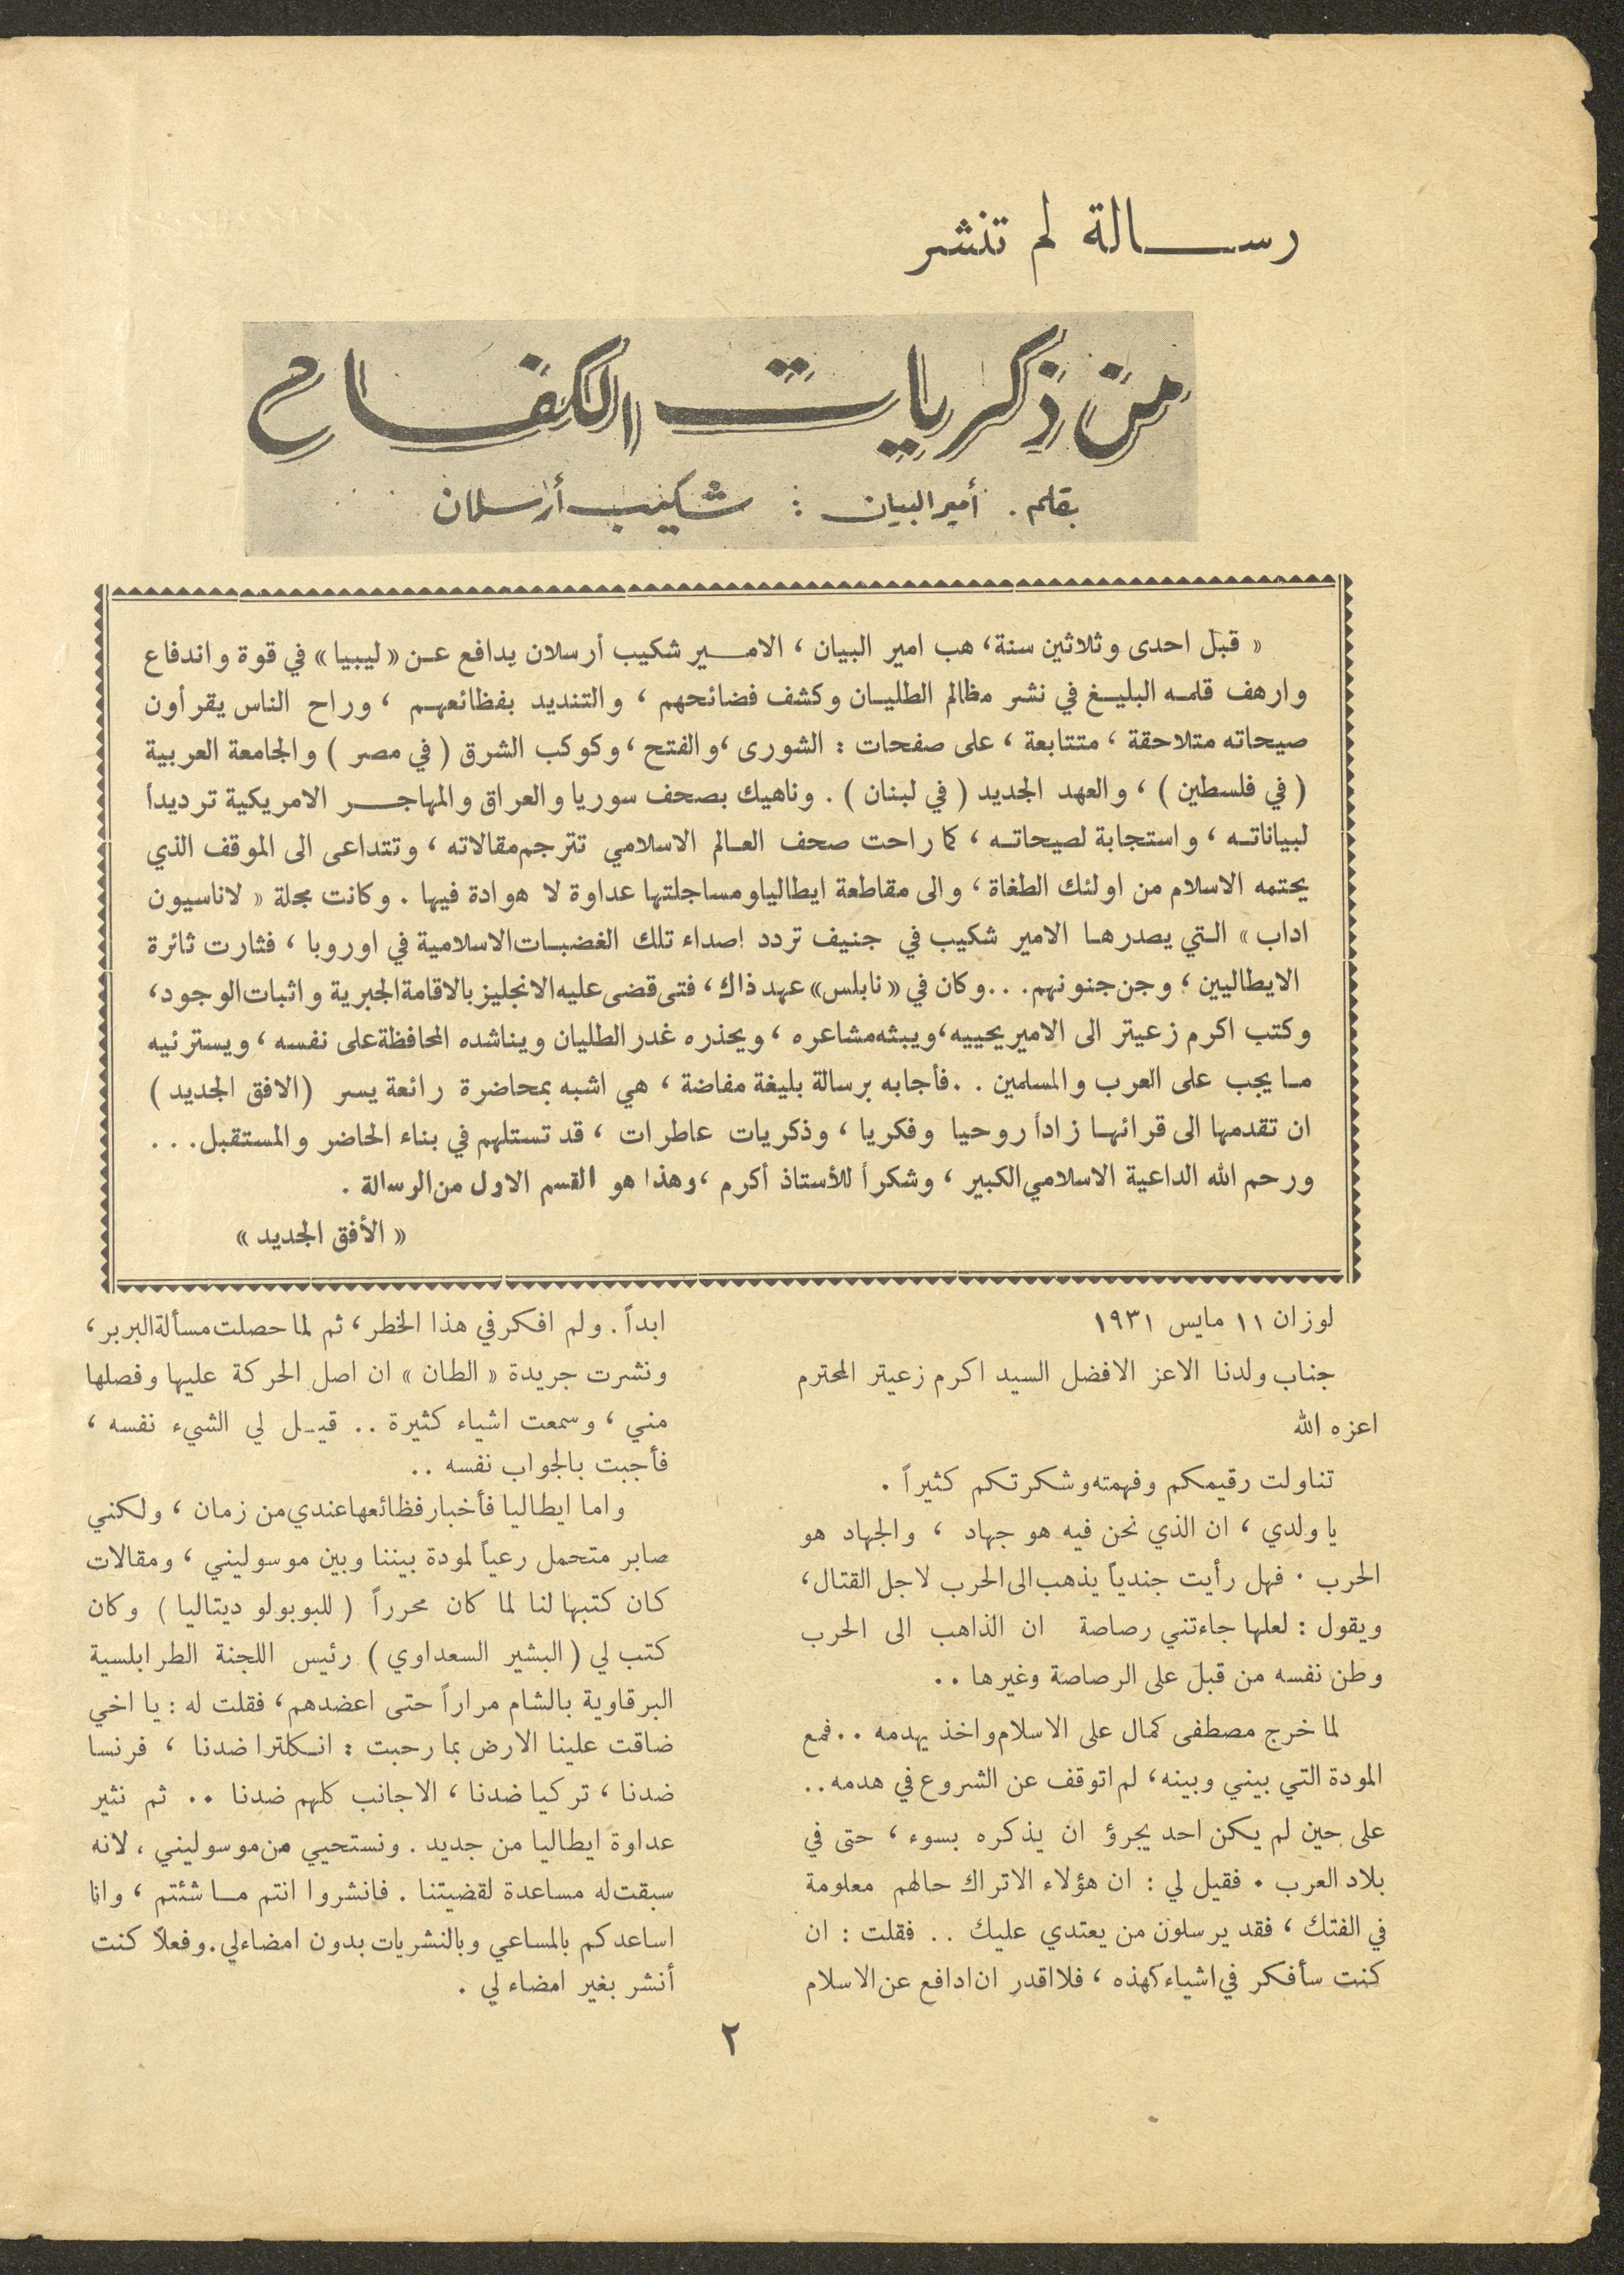 رســـــالة لم تنشر
من ذكريات الكفاح
بقلم . أمير البيان : شكيب أرسلان
« قبل احدى وثلاثين سنة، هب امير البيان ، الامـــير شكيب أرسلان يدافع عـن «ليبيا» في قوة واندفاع
وارهف قلمـه البليـغ في نشر مظالم الطليـان وكشف فضائحهم ، والتنديد بفظائعهـم ، وراح الناس يقرأون
صيحاته متلاحقة ، متتابعة ، على صفحات : الشورى ،والفتح ، وكوكب الشرق ( في مصر ) والجامعة العربية
( في فلسطين ) ، والعهد الجديد ( في لبنان ) . وناهيك بصحف سوريا والعراق والمهاجـــر الامريكية ترديداً
لبياناتـه ، واستجابة لصيحاتـه ، كما راحت صحف العـالم الاسلامي تترجم مقالاته ، وتتداعى الى الموقف الذي
يحتمه الاسلام من اولئك الطغاة ، والى مقاطعة ايطاليا ومساجلتها عداوة لا هوادة فيها . وكانت مجلة « لاناسيون
اداب » الـتي يصدرهـا الامير شكيب في جنيف تردد اصداء تلك الغضبـات الاسلامية في اوروبا ، فثارت ثائرة
الايطاليين ، وجن جنونهم. . .وكان في «نابلس» عهد ذاك، فتى قضى عليه الانجليز بالاقامة الجبرية واثبات الوجود،
وكتب اكرم زعيتر الى الامير يحييه، ويبثه مشاعره ، ويحذره غدر الطليان ويناشده المحافظة على نفسه ، ويسترئيه
مـا يجب على العرب والمسلمين . .فأجابه برسالة بليغة مفاضة ، هي اشبه بمحاضرة رائعة يسر (الافق الجديد )
ان تقدمها الى قرائهـا زاداً روحيا وفكريا ، وذكريات عاطرات ، قد تستلهم في بناء الحاضر والمستقبل. . .
ورحم الله الداعية الاسلامي الكبير ، وشكراً للأستاذ أكرم ،وهذا هو القسم الاول من الرسالة .
« الأفق الجديد »
لوزان ١١ مايس ١٩٣١
جناب ولدنا الاعز الافضل السيد اكرم زعيتر المحترم
اعزه الله
تناولت رقيمكم وفهمته وشكرتكم كثيراً .
يا ولدي ، ان الذي نحن فيه هو جهاد ، والجهاد هو
الحرب . فهل رأيت جندياً يذهب الى الحرب لاجل القتال،
ويقول : لعلها جاءتني رصاصة ان الذاهب الى الحرب
وطن نفسه من قبل على الرصاصة وغيرها . .
لما خرج مصطفى كمال على الاسلام واخذ يهدمه . . فمع
المودة التي بيني وبينه، لم اتوقف عن الشروع في هدمه . .
على حين لم يكن احد يجرؤ ان يذكره بسوء ، حتى في
بلاد العرب . فقيل لي : ان هؤلاء الاتراك حالهم معلومة
في الفتك ، فقد يرسلون من يعتدي عليك . . فقلت : ان
كنت سأفكر في اشياء كهذه ، فلا اقدر ان ادافع عن الاسلام
ابداً . ولم افكر في هذا الخطر، ثم لما حصلت مسألة البربر،
ونشرت جريدة « الطان » ان اصل الحركة عليها وفصلها
مني ، وسمعت اشياء كثيرة . . قيـل لي الشيء نفسه ،
فأجبت بالجواب نفسه . .
واما ايطاليا فأخبار فظائعها عندي من زمان ، ولكني
صابر متحمل رعياً لمودة بيننا وبين موسوليني ، ومقالات
كان كتبها لنا لما كان محرراً ( للبوبولو ديتاليا ) وكان
كتب لي ( البشير السعداوي ) رئيس اللجنة الطرابلسية
البرقاوية بالشام مراراً حتى اعضدهم، فقلت له : يا اخي
ضاقت علينا الارض بما رحبت : انـكلترا ضدنا ، فرنسا
ضدنا ، تركيا ضدنا ، الاجانب كلهم ضدنا . . ثم نثير
عداوة ايطاليا من جديد . ونستحيي من موسوليني ، لانه
سبقت له مساعدة لقضيتنا . فانشروا انتم مـا شئتم ، وانا
اساعدكم بالمساعي وبالنشريات بدون امضاء لي. وفعلاً كنت
أنشر بغير امضاء لي .
٢